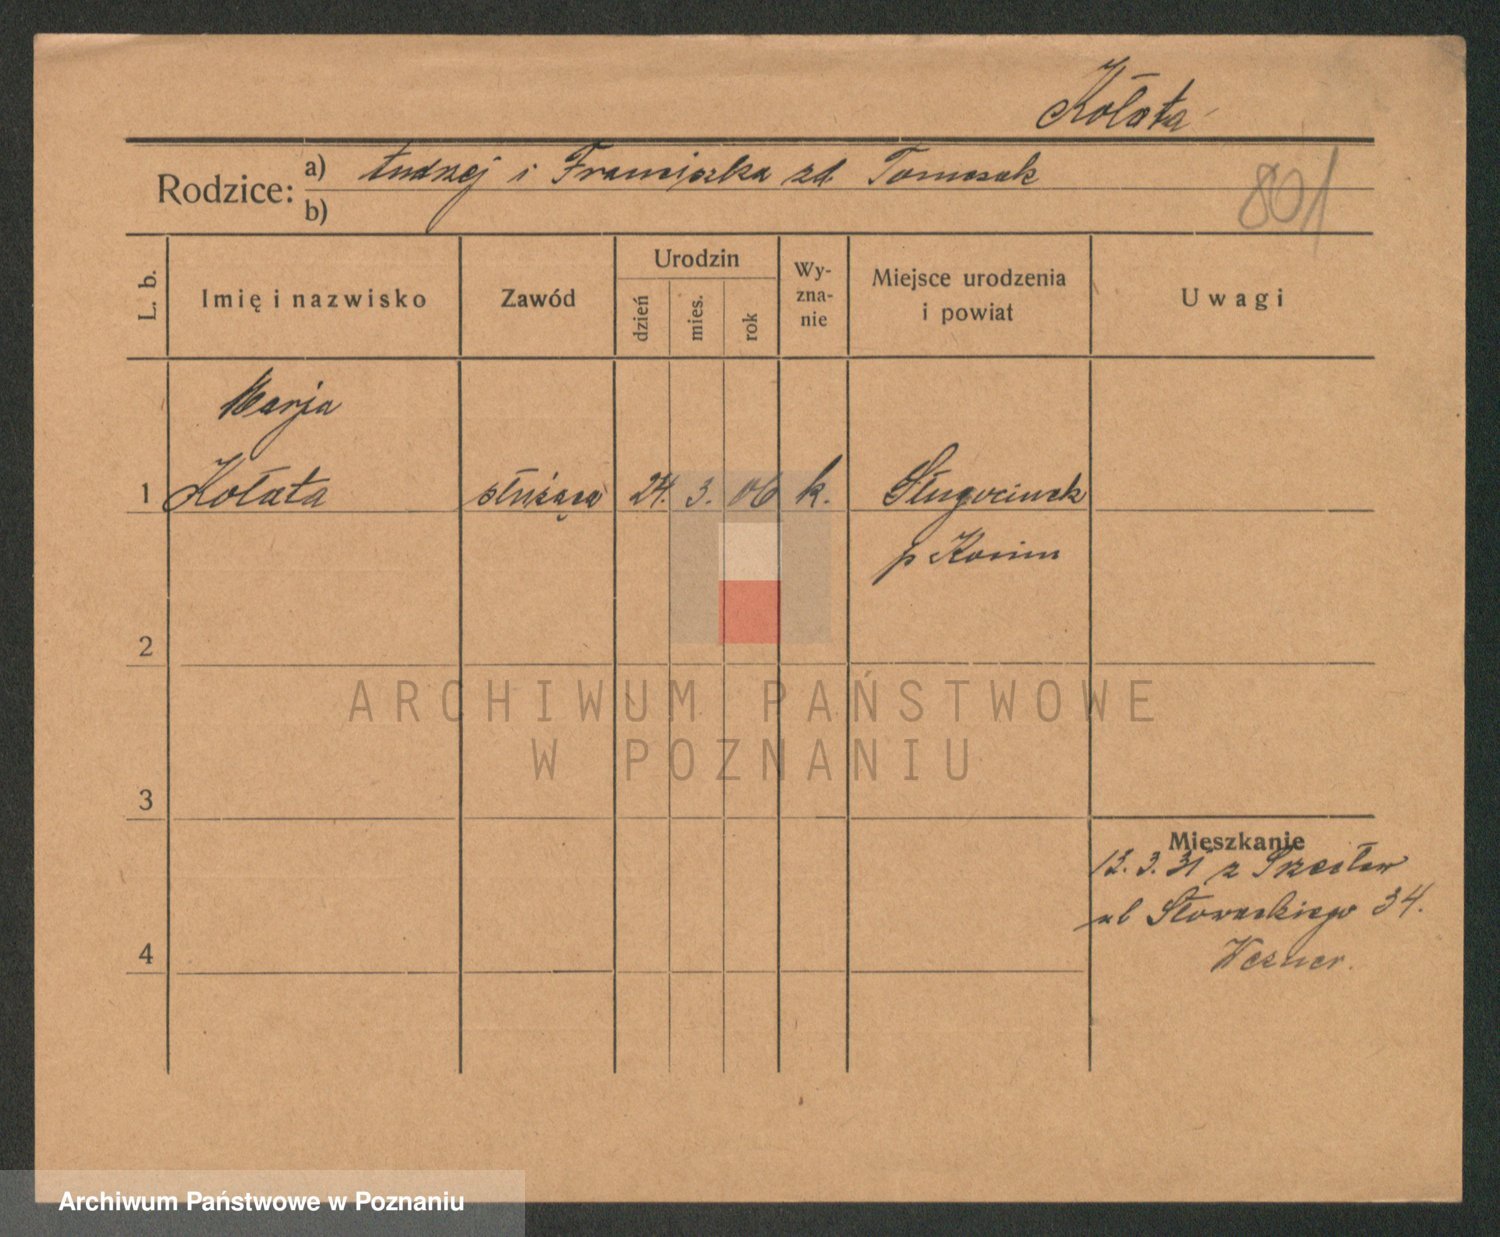 Kołata
Rodzice: a) Andrzej i Franciszka zd Tomczak
b)
801
L. b.
Imię i nazwisko
Zawód
Urodzin
dzień
mies.
rok
Wy-
zna-
nie
Miejsce urodzenia
i powiat
Uwagi
Marja
1 Kołata służąca 24. 3. 06 k. Sługocinek
p Konin
2
ARCHIWUM PAŃSTWOWE
W POZNANIU
3
Mieszkanie
13. 3. 31 z
ul Słowackiego 34.
4
Archiwum Państwowe w Poznaniu